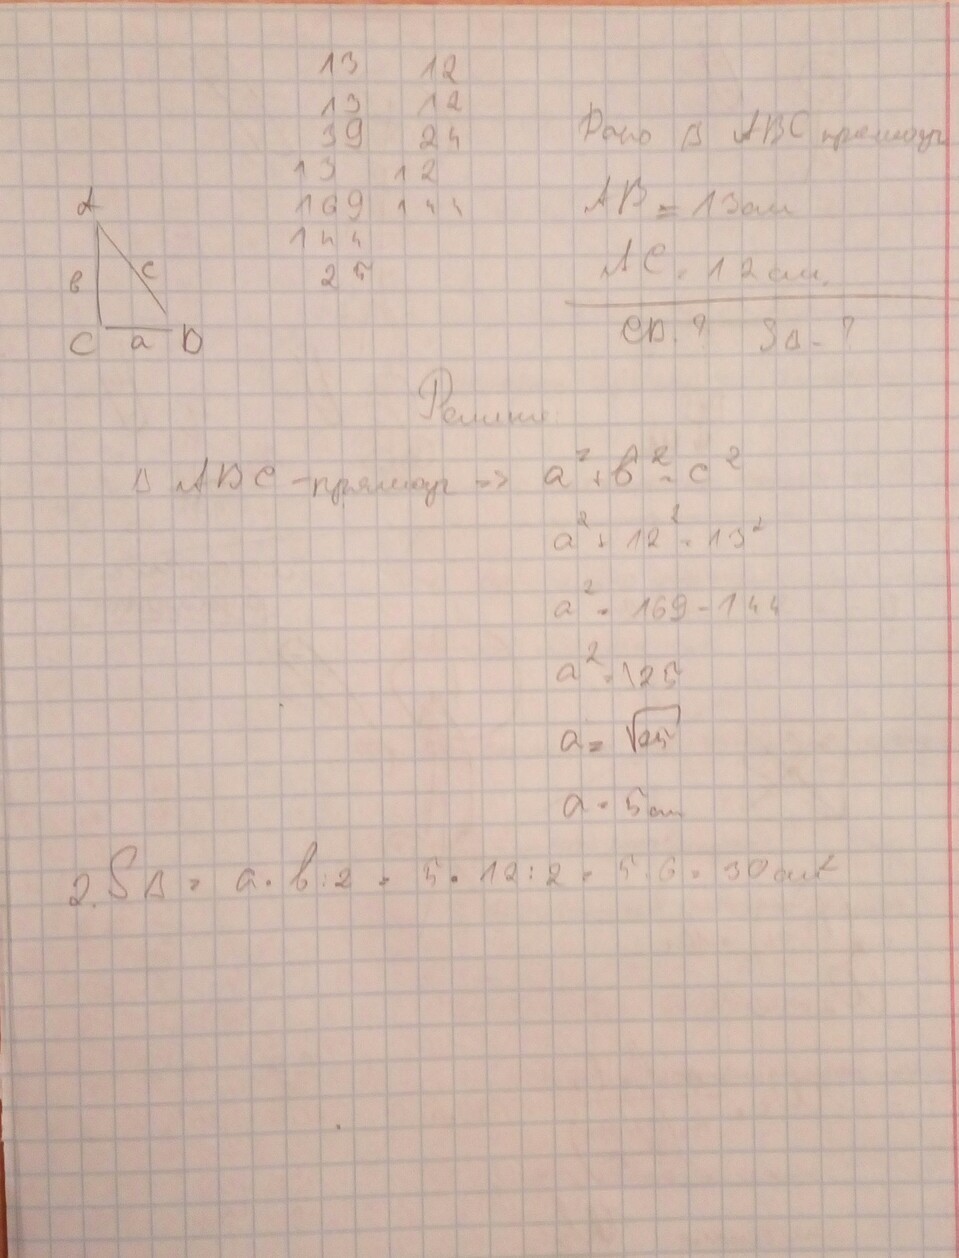 13 12
13 12
39 24
13 12
169 144
144
25
A
в c
C a B
Дано △ ABC прямоуг
AB = 13 см
AC = 12 см.
CB = ? S△ - ?
Решение:
△ ABC - прямоуг => a² + в² = c²
a² + 12² = 13²
a² = 169 - 144
a² = 25
a = √25
a = 5 см
2. S△ = a · в : 2 = 5 · 12 : 2 = 5 · 6 = 30 см²